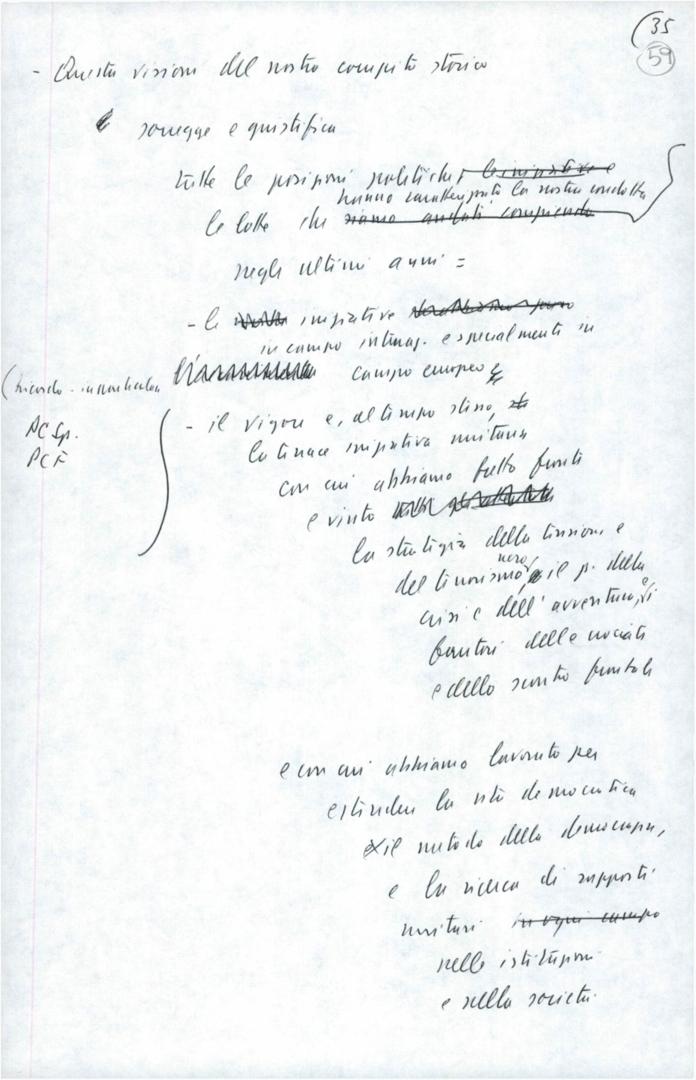 35
59
- Questa visione del nostro compito storico
sorregge e giustifica
tutte le posizioni politiche, le iniziative e
hanno caratterizzato la nostra condotta
le lotte che siamo andati compiendo
negli ultimi anni =
- le iniziative
in campo internaz. e specialmente in
campo europeo
(ricordo - in particolare
PCSp.
PCF
- il vigore e, al tempo stesso,
la tenace iniziativa unitaria
con cui abbiamo fatto fronte
e vinto
la strategia della tensione e
nero
del terrorismo, il p. della
crisi e dell'avventura, i
fautori delle crociate
e dello scontro frontale
e con cui abbiamo lavorato per
estendere la vita democratica
e il metodo della democrazia,
e la ricerca di rapporti
unitari in ogni campo
nelle istituzioni
e nella società.